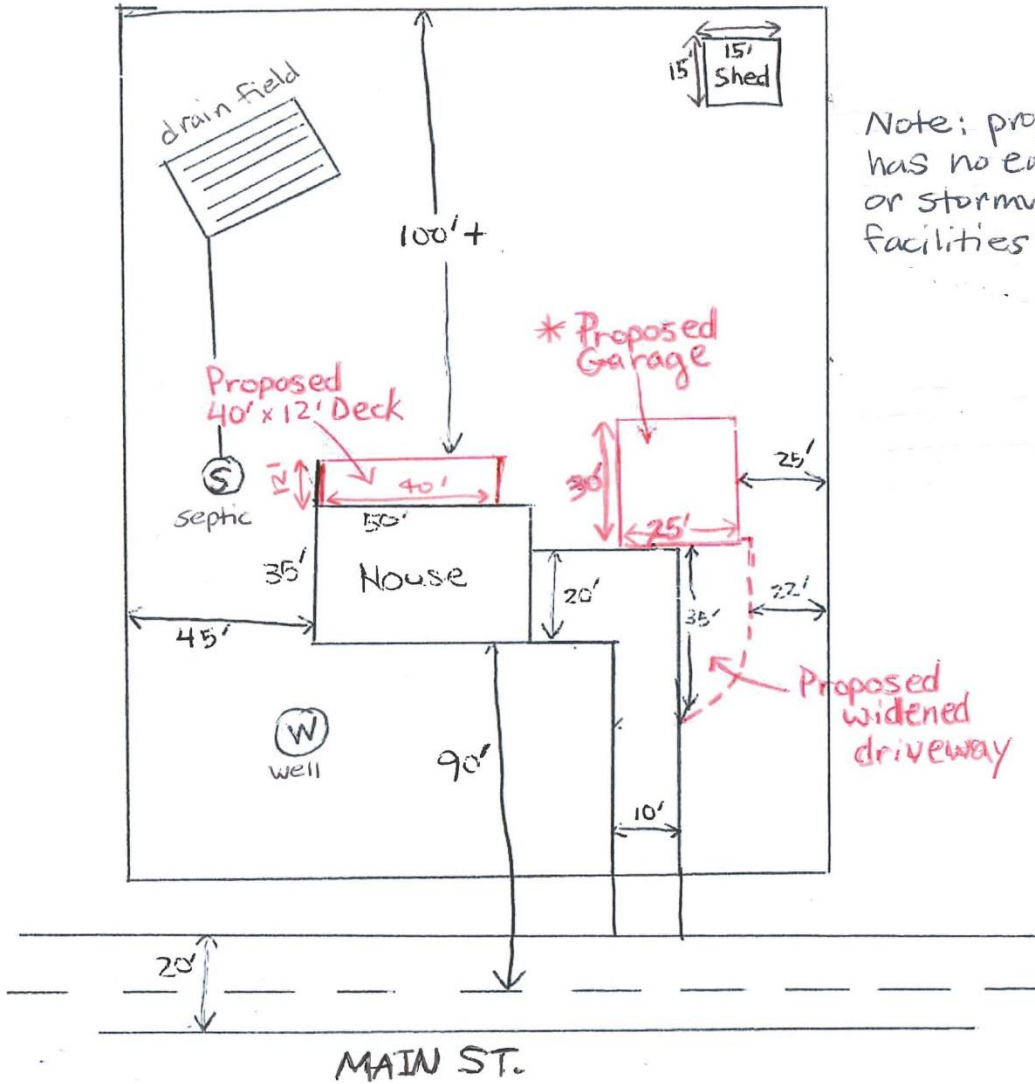 drain field
15'
15'
Shed
Note: pro
has no ea
or stormw
facilities
100'+
* Proposed
Garage
Proposed
40' x 12' Deck
S
septic
12'
40'
30'
25'
25'
50'
35'
House
20'
35'
22'
45'
Proposed
widened
driveway
W
well
90'
10'
20'
MAIN ST.